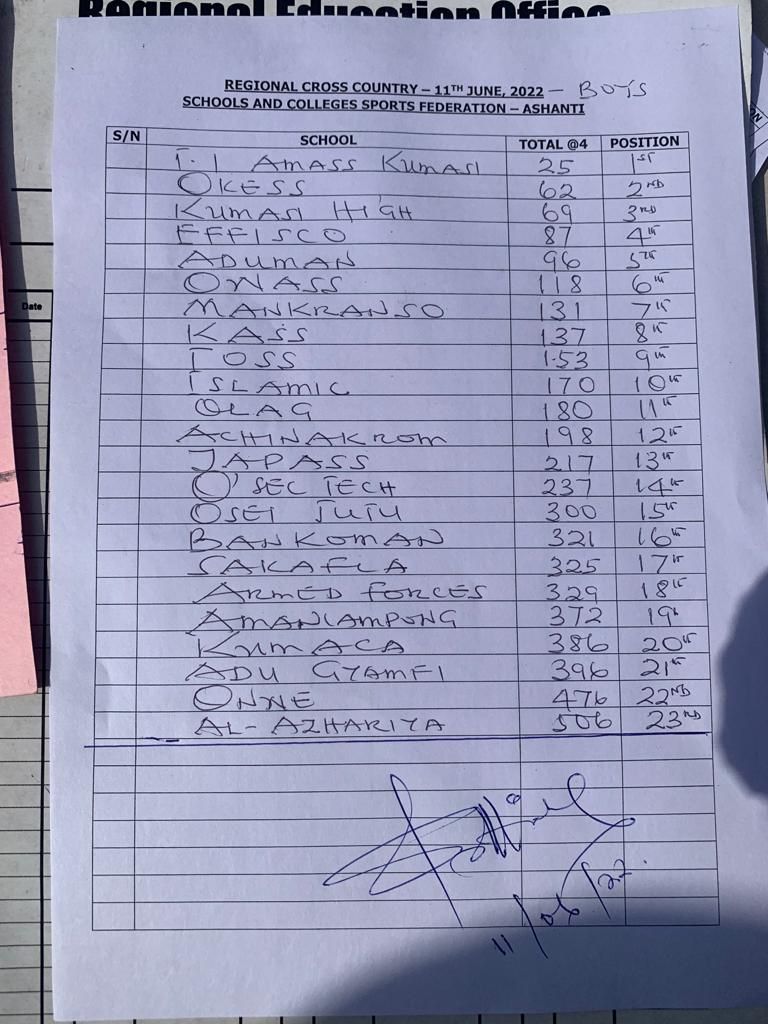 Regional Education Office
REGIONAL CROSS COUNTRY – 11TH JUNE, 2022 – BOYS
SCHOOLS AND COLLEGES SPORTS FEDERATION – ASHANTI
S/N SCHOOL TOTAL @4 POSITION
T.I AMASS KUMASI 25 1ST
OKESS 62 2ND
KUMASI HIGH 69 3RD
EFFISCO 87 4TH
ADUMAN 96 5TH
OWASS 118 6TH
MANKRANSO 131 7TH
KASS 137 8TH
TOSS 153 9TH
ISLAMIC 170 10TH
OLAG 180 11TH
ACHINAKROM 198 12TH
JAPASS 217 13TH
O'SEC TECH 237 14TH
OSEI TUTU 300 15TH
BANKOMAN 321 16TH
SAKAFLA 325 17TH
ARMED FORCES 329 18TH
AMANIAMPONG 372 19TH
KUMACA 386 20TH
ADU GYAMFI 396 21ST
ONWE 476 22ND
AL-AZHARIYA 506 23RD
11/06/22.
Date